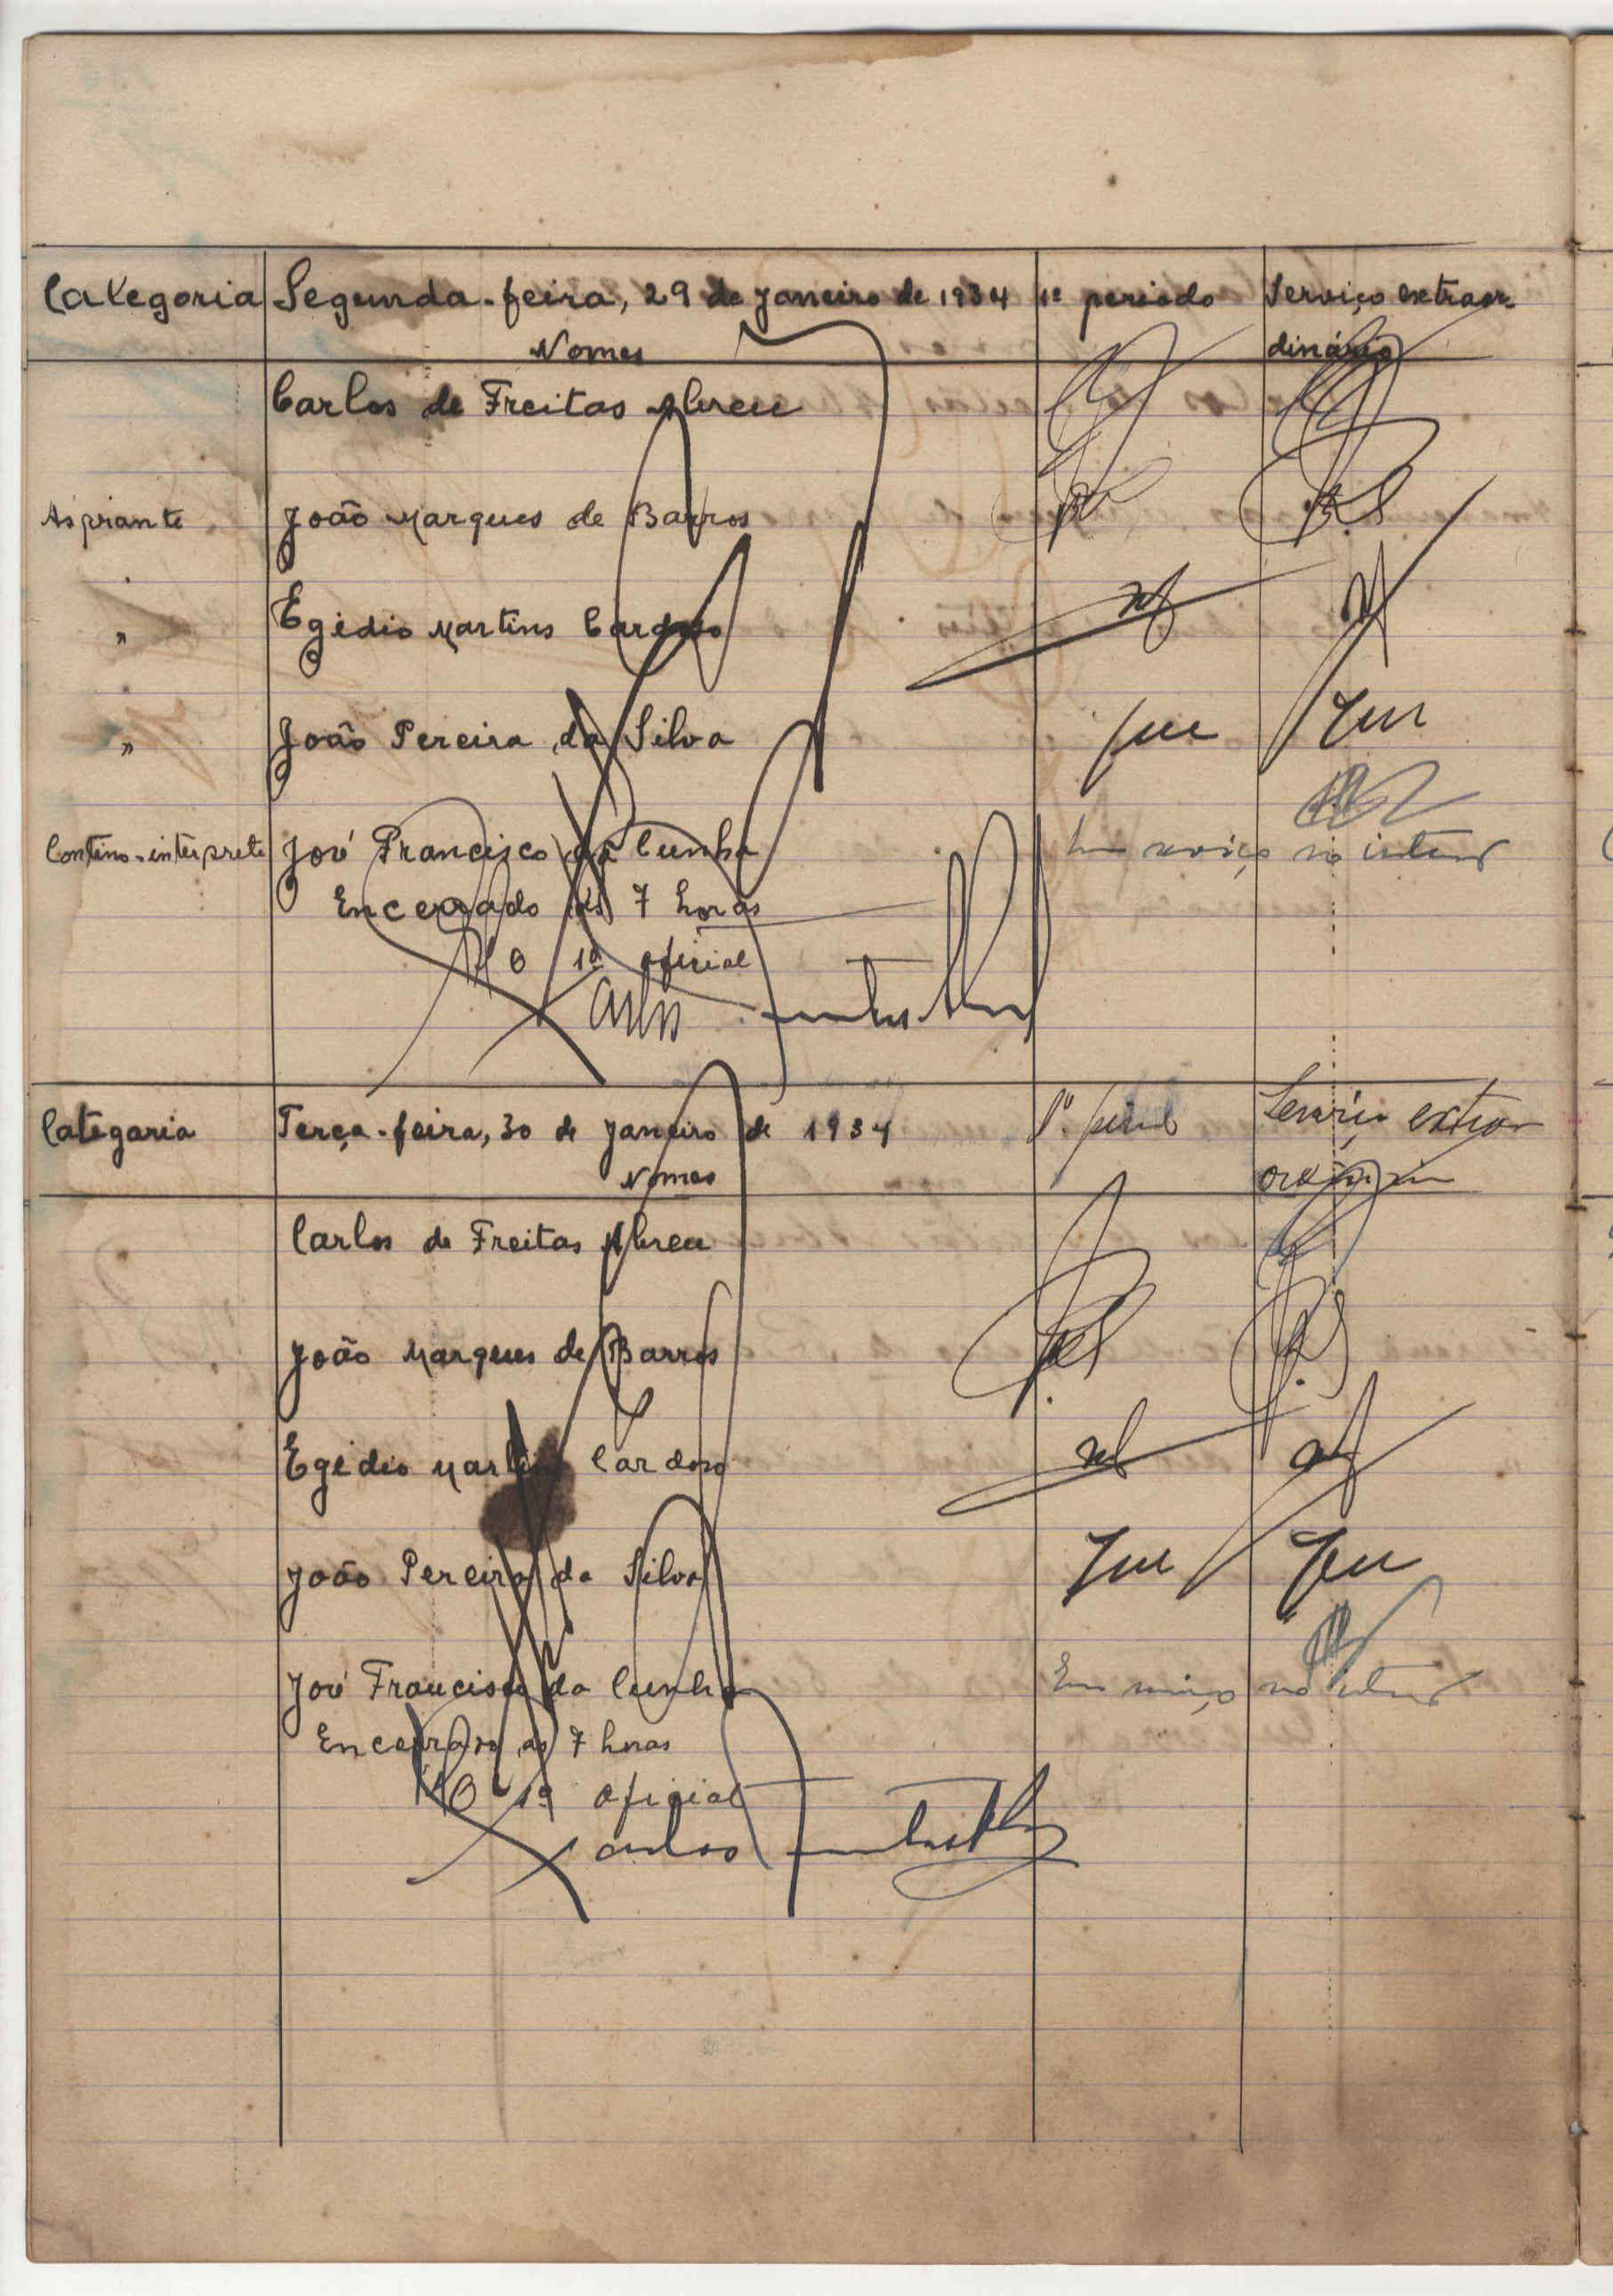 Categoria Segunda-feira, 29 de Janeiro de 1934 1º periodo Serviço extraor-
Nomes dinário
Carlos de Freitas Abreu
Aspirante João Marques de Barros
" Egidio Martins Cardoso
" João Pereira da Silva
Contino-interprete José Francisco da Cunha Em serviço no interior
Encerrado ás 7 horas
O 1º oficial
Carlos
Categaria Terça-feira, 30 de Janeiro de 1934 1º. Serviço extra
Nomes
Carlos de Freitas Abreu
João Marques de Barros
Egidio Martins Cardoso
João Pereira da Silva
José Francisco da Cunha Em serviço no interior
Encerrado ás 7 horas
O 1º oficial
Carlos